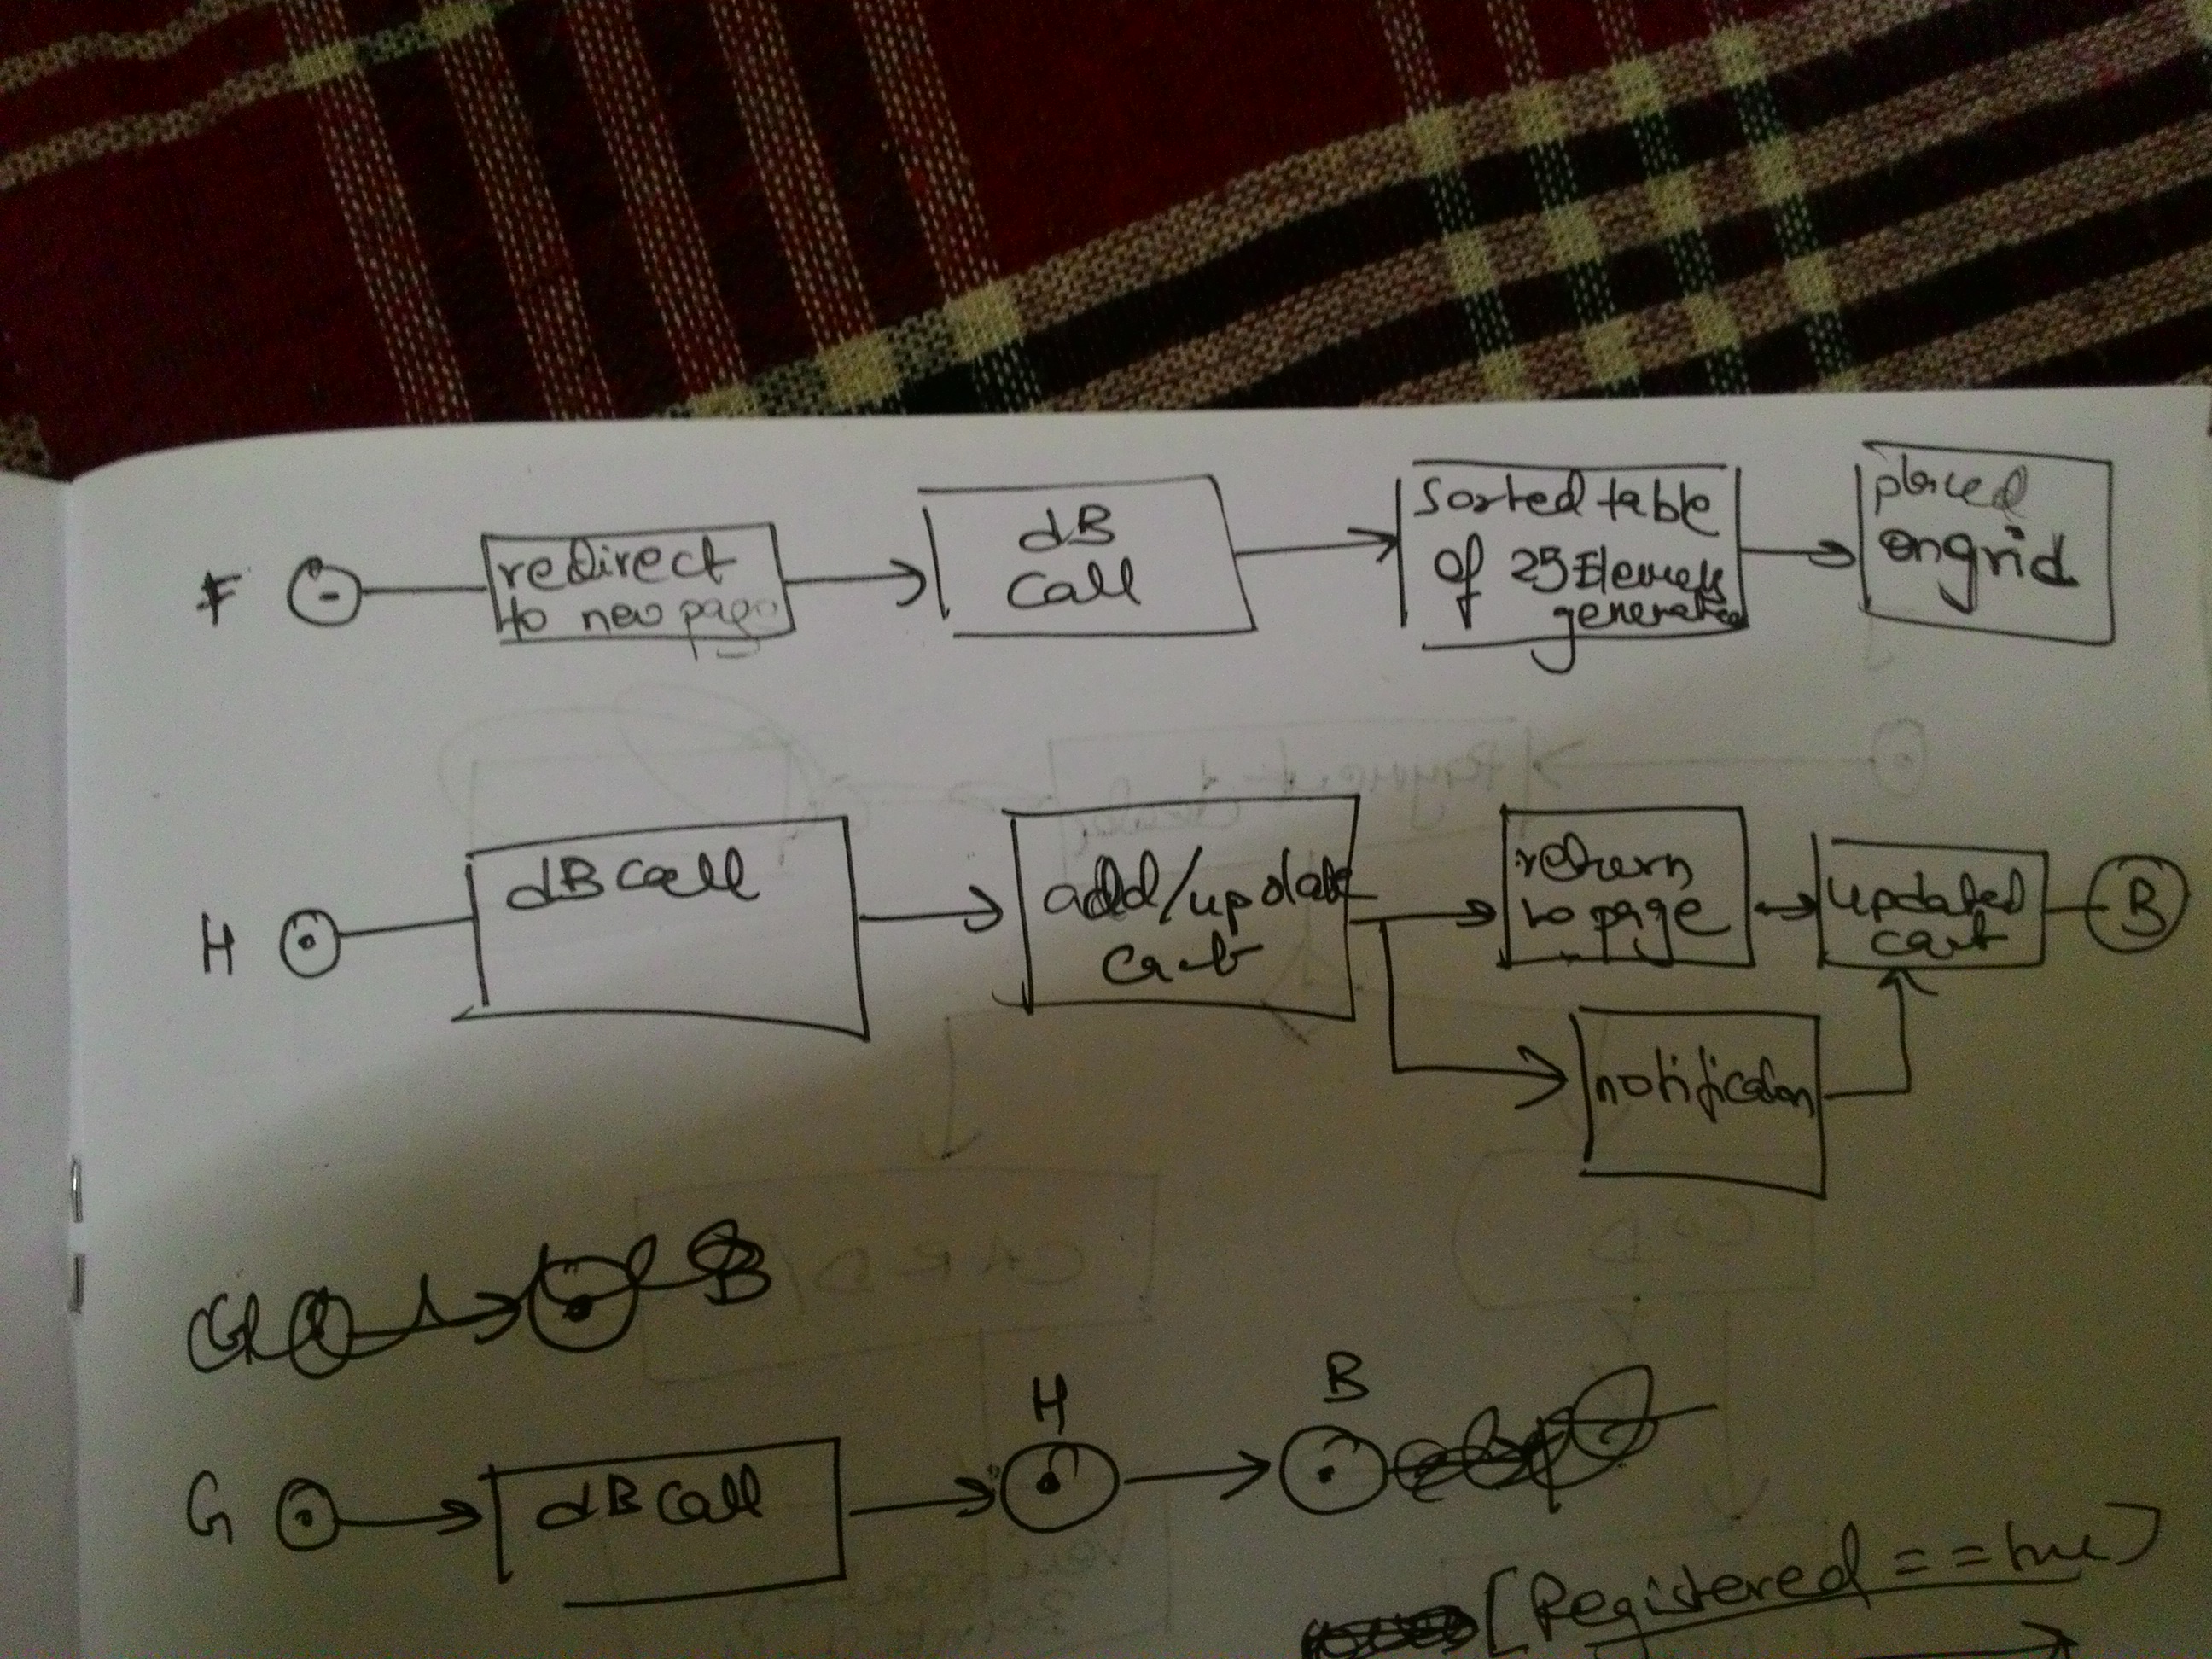 F
redirect
to new page
dB
call
Sorted table
of 25 Elements
generated
placed
on grid
H
dB call
add/update
cart
return
to page
updated
cart
B
notification
B
G
dB call
H
B
[Registered == true]